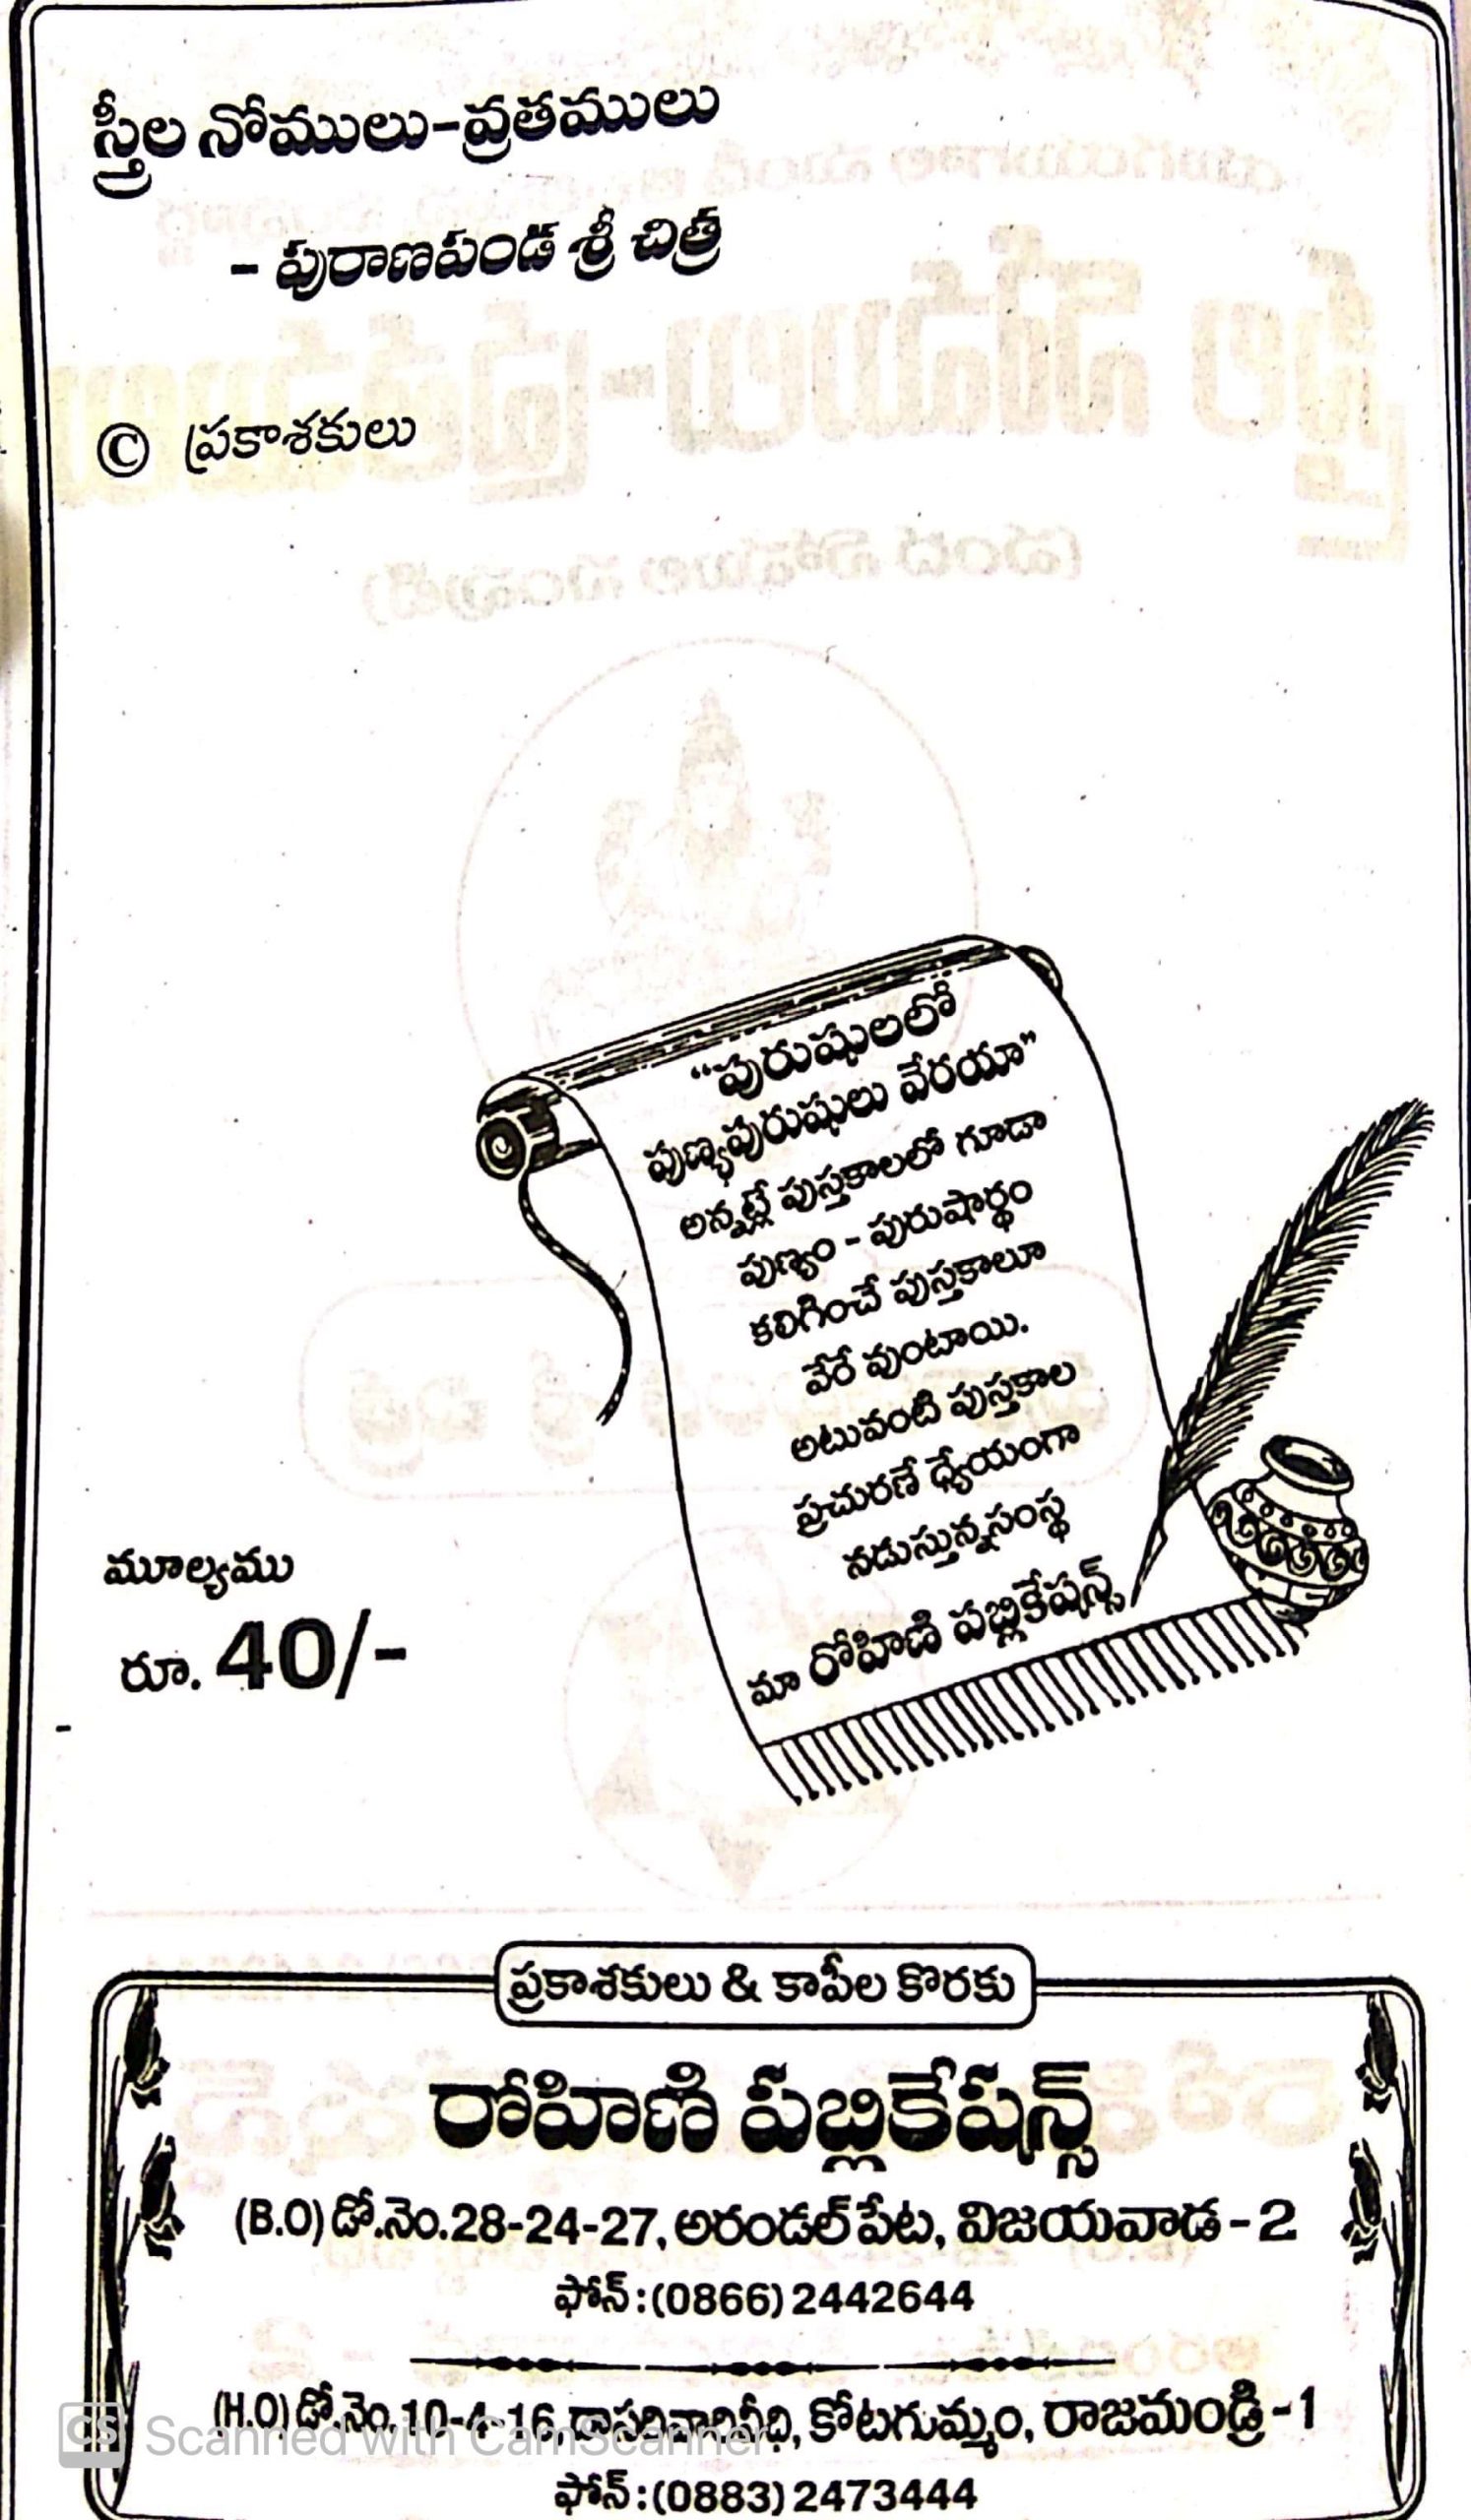 స్త్రీల నోములు-వ్రతములు
- పురాణపండ శ్రీ చిత్ర
© ప్రకాశకులు
"పురుషులలో
పుణ్యపురుషులు వేరయా"
అన్నట్లే పుస్తకాలలో గూడా
పుణ్యం - పురుషార్థం
కలిగించే పుస్తకాలూ
వేరే వుంటాయి.
అటువంటి పుస్తకాల
ప్రచురణే ధ్యేయంగా
నడుస్తున్నసంస్థ
మా రోహిణి పబ్లికేషన్స్
మూల్యము
రూ. 40/-
ప్రకాశకులు & కాపీల కొరకు
రోహిణి పబ్లికేషన్స్
(B.O) డో.నెం.28-24-27, అరండల్ పేట, విజయవాడ - 2
ఫోన్ : (0866) 2442644
(H.O) డో.నెం.10-4-16, దాసరివారివీధి, కోటగుమ్మం, రాజమండ్రి - 1
ఫోన్ : (0883) 2473444
CS Scanned with CamScanner